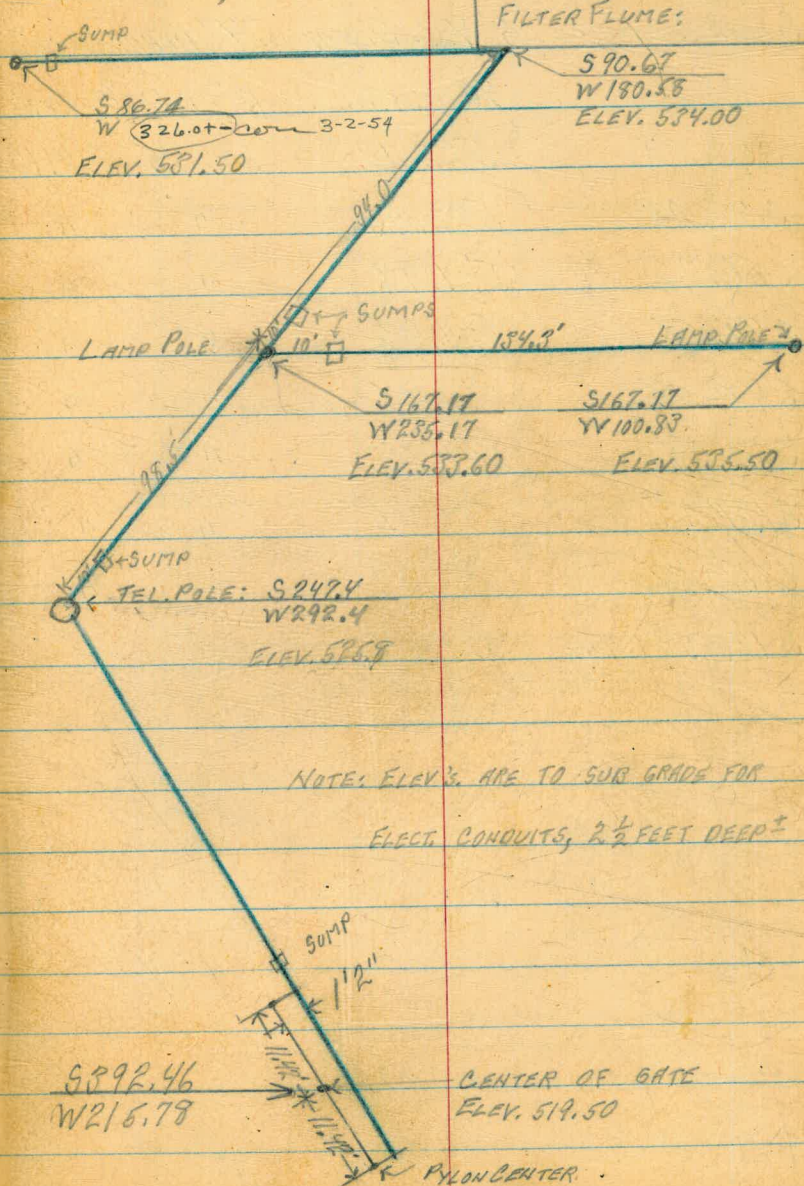 FILTER FLUME:
SUMP
S 90.67
W 180.58
ELEV. 534.00
S 86.74
W 326.0+- corr 3-2-54
ELEV. 531.50
94.0
SUMPS
LAMP POLE
10'
10'
134.3'
LAMP POLE
S 167.17
W 235.17
ELEV. 533.60
S 167.17
W 100.83
ELEV. 535.50
98.5
SUMP
TEL. POLE: S 247.4
W 292.4
NOTE: ELEV'S. ARE TO SUB GRADE FOR
ELECT. CONDUITS, 2 1/2 FEET DEEP ±
SUMP
1'2"
11.42'
11.42'
S 392.46
W 215.78
CENTER OF GATE
ELEV. 519.50
PYLON CENTER